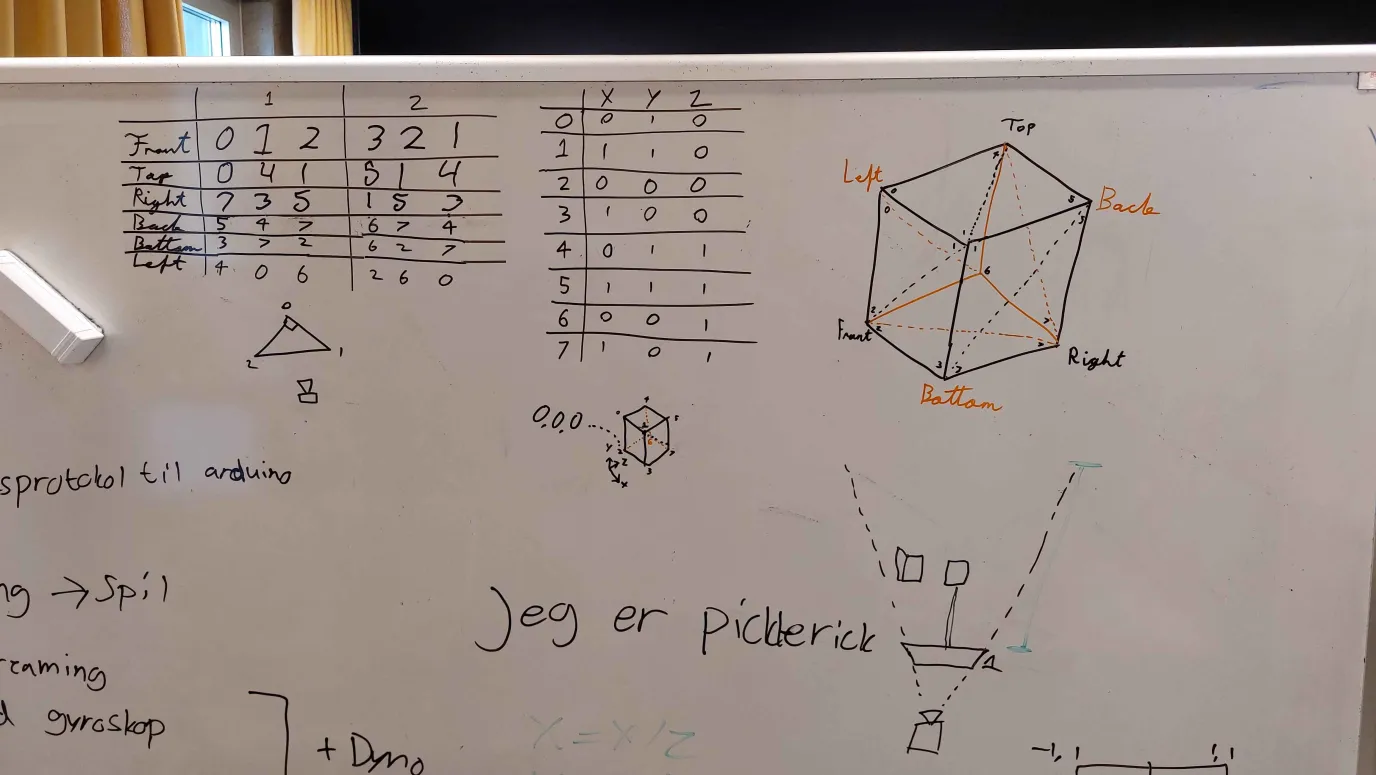 1 2
Front 0 1 2 3 2 1
Top 0 4 1 5 1 4
Right 7 3 5 1 5 3
Back 5 4 7 6 7 4
Bottom 3 7 2 6 2 7
Left 4 0 6 2 6 0
0
2 1
X Y Z
0 0 1 0
1 1 1 0
2 0 0 0
3 1 0 0
4 0 1 1
5 1 1 1
6 0 0 1
7 1 0 1
Top
Left
Back
Front
Right
Bottom
0,0,0
Y
Z
X
sprotokol til arduino
ng → Spil
Jeg er pickderick
1
reaming
gyroskop
+ Dyno
X = X/Z
-1, 1 1, 1